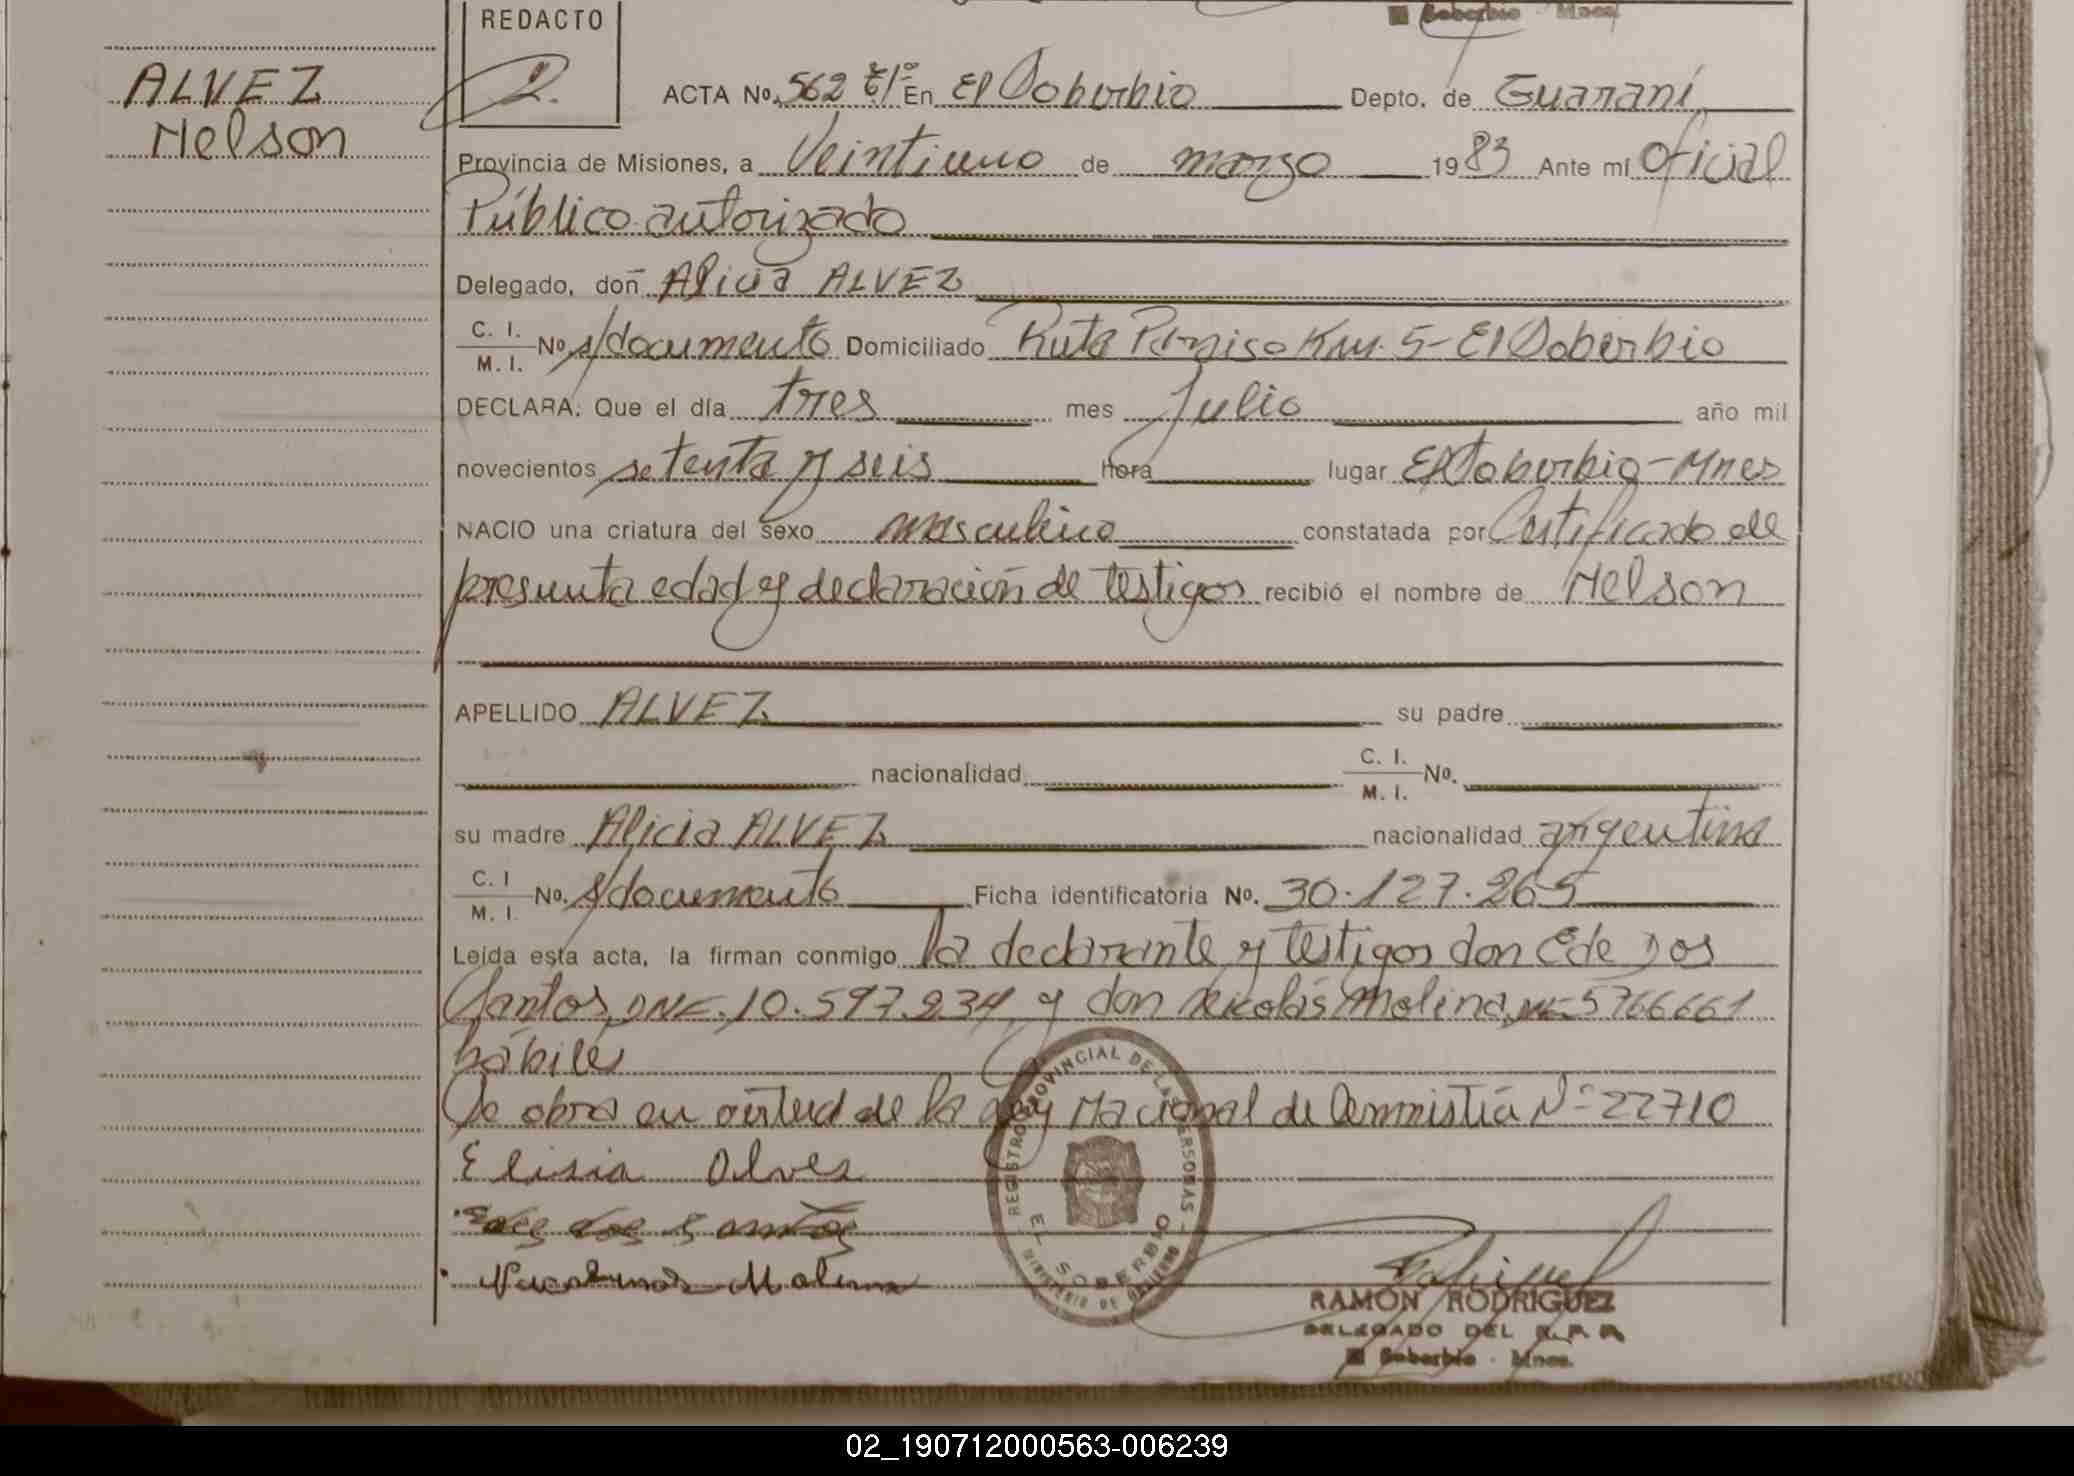 El Soberbio - Mnes.
REDACTO
ALVEZ
Nelson
ACTA No. 562 Tº 1º En El Soberbio Depto. de Guaraní
Provincia de Misiones, a Veintiuno de marzo 1983 Ante mí Oficial
Público autorizado
Delegado, don Alicia ALVEZ
C. I.
M. I. No. s/documento Domiciliado Ruta Paraiso Km. 5 - El Soberbio
DECLARA: Que el día tres mes Julio año mil
novecientos setenta y seis hora lugar El Soberbio - Mnes
NACIO una criatura del sexo masculino constatada por Certificado de
presunta edad y declaración de testigos recibió el nombre de Nelson
APELLIDO ALVEZ su padre
nacionalidad C. I.
M. I. No.
su madre Alicia ALVEZ nacionalidad argentina
C. I
M. I. No. s/documento Ficha identificatoria No. 30.127.265
Leída esta acta, la firman conmigo la declarante y testigos don Ede Dos
Santos, DNI. 10.597.234 y don Nicolás Molina, 5766661
hábiles
Se obra en virtud de la Ley Nacional de Amnistía Nº 22710
Elisia Alves
Ede dos santos
Molina
REGISTRO PROVINCIAL DE LAS PERSONAS
EL SOBERBIO
MINISTERIO DE GOBIERNO
RAMON RODRIGUEZ
DELEGADO DEL R. P. P.
El Soberbio - Mnes.
02_190712000563-006239